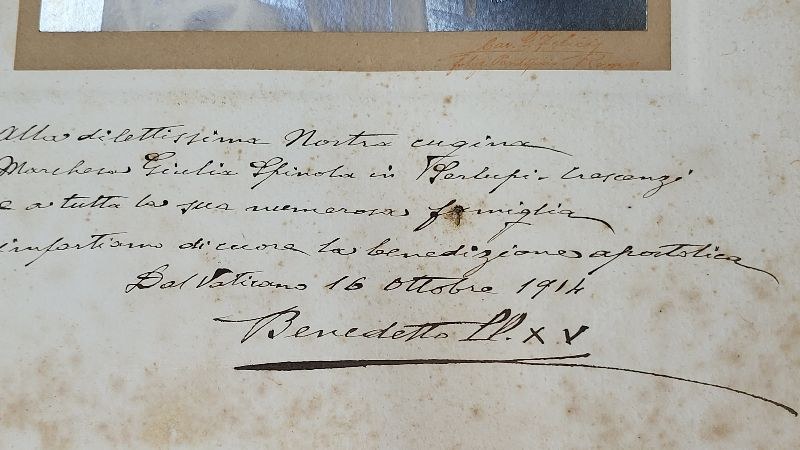 Cav. G. Felici
Roma
Alla dilettissima Nostra cugina
Marchesa Giulia Spinola in Serlupi-Crescenzi
e a tutta la sua numerosa famiglia
impartiamo di cuore la benedizione apostolica
Dal Vaticano 16 Ottobre 1914
Benedetto PP. XV